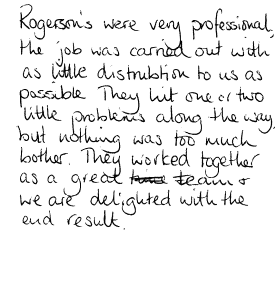 Rogerson's were very professional,
the job was carried out with
as little distrubtion to us as
possible They hit one or two
little problems along the way,
but nothing was too much
bother. They worked together
as a great team &
we are delighted with the
end result.